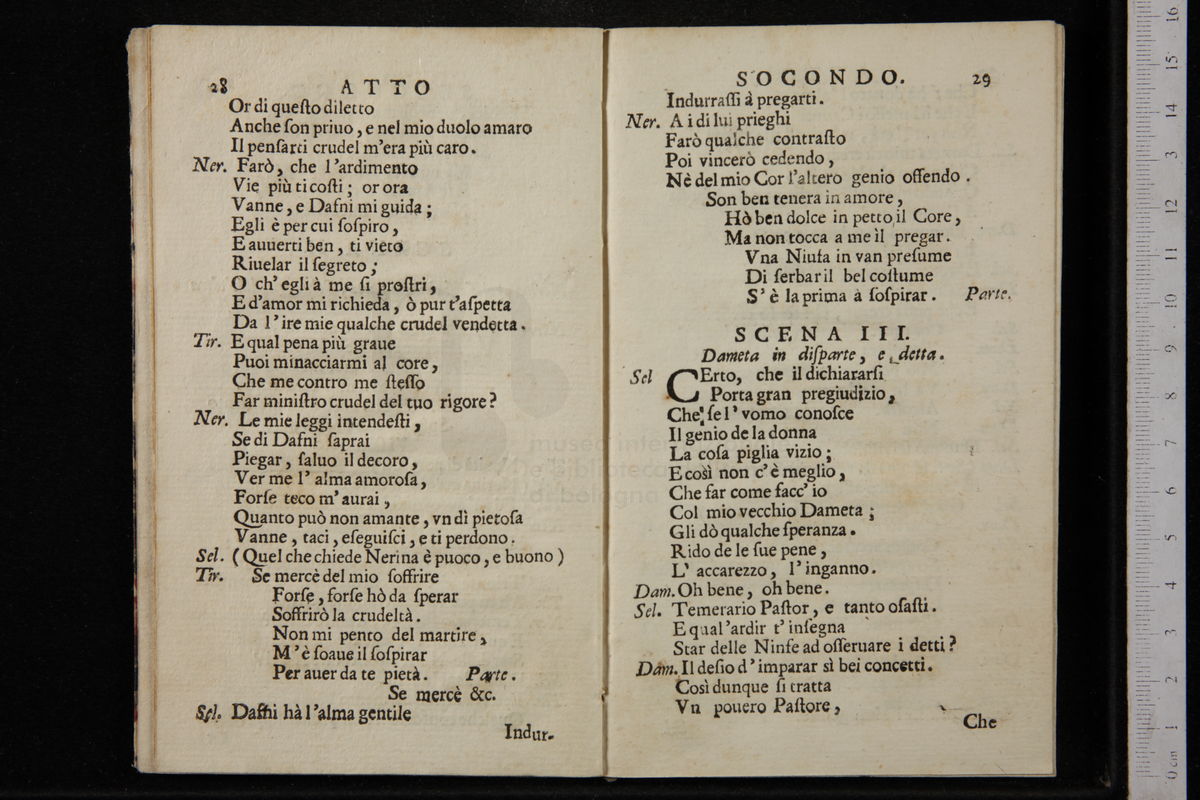 28 ATTO
Or di queſto diletto
Anche ſon priuo, e nel mio duolo amaro
Il penſarti crudel m'era più caro.
Ner. Farò, che l'ardimento
Vie più ti coſti; or ora
Vanne, e Dafni mi guida;
Egli è per cui ſoſpiro,
E auuerti ben, ti vieto
Riuelar il ſegreto;
O ch' egli à me ſi proſtri,
E d'amor mi richieda, ò pur t'aſpetta
Da l'ire mie qualche crudel vendetta.
Tir. E qual pena più graue
Puoi minacciarmi al core,
Che me contro me ſteſſo
Far miniſtro crudel del tuo rigore?
Ner. Le mie leggi intendeſti,
Se di Dafni ſaprai
Piegar, ſaluo il decoro,
Ver me l' alma amoroſa,
Forſe teco m' aurai,
Quanto può non amante, vn dì pietoſa
Vanne, taci, eſeguiſci, e ti perdono.
Sel. (Quel che chiede Nerina è puoco, e buono)
Tir. Se mercè del mio ſoffrire
Forſe, forſe hò da ſperar
Soffrirò la crudeltà.
Non mi pento del martire,
M'è ſoaue il ſoſpirar
Per auer da te pietà. Parte.
Se mercè &c.
Sel. Dafni hà l'alma gentile
Indur-
SOCONDO. 29
Indurraſſi à pregarti.
Ner. A i di lui prieghi
Farò qualche contraſto
Poi vincerò cedendo,
Nè del mio Cor l'altero genio offendo.
Son ben tenera in amore,
Hò ben dolce in petto il Core,
Ma non tocca a me il pregar.
Vna Niufa in van preſume
Di ſerbar il bel coſtume
S' è la prima à ſoſpirar. Parte.
SCENA III.
Dameta in diſparte, e detta.
Sel CErto, che il dichiararſi
Porta gran pregiudizio,
Che ſe l' vomo conoſce
Il genio de la donna
La coſa piglia vizio;
E così non c' è meglio,
Che far come facc' io
Col mio vecchio Dameta;
Gli dò qualche ſperanza.
Rido de le ſue pene,
L' accarezzo, l' inganno.
Dam. Oh bene, oh bene.
Sel. Temerario Paſtor, e tanto oſaſti.
E qual'ardir t' inſegna
Star delle Ninfe ad oſſeruare i detti?
Dam. Il deſio d' imparar sì bei concetti.
Così dunque ſi tratta
Vn pouero Paſtore,
Che
museo
De Biblioteca
di bologna
0 cm 1 2 3 4 5 6 7 8 9 10 11 12 13 14 15 16